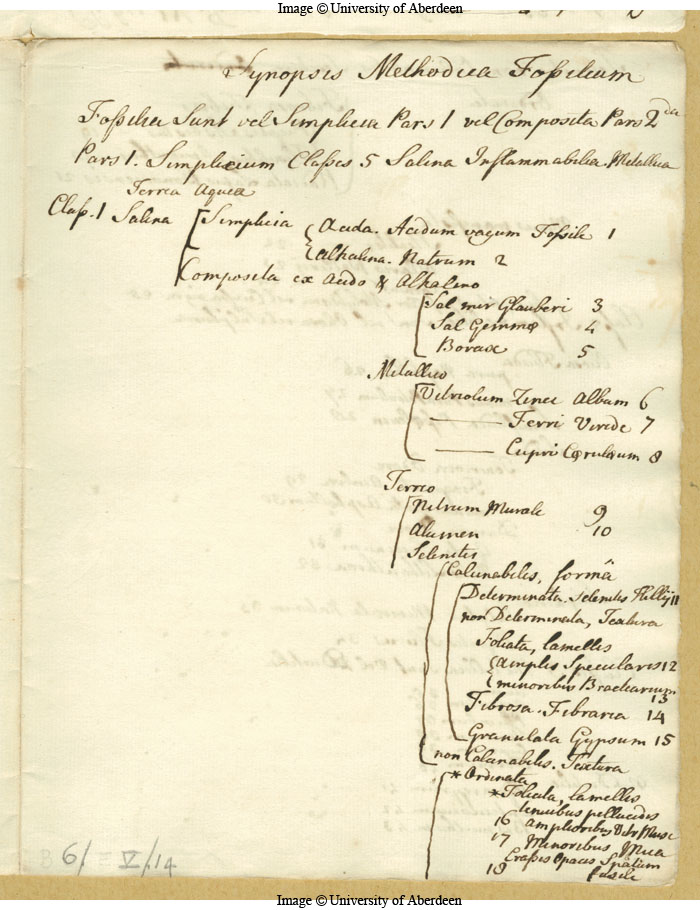 Image © University of Aberdeen
Synopsis Methodica Fossilium
Fossilia Sunt vel Simplicia Pars 1 vel Composita Pars 2da
Pars 1. Simplicium Classes 5 Salina Inflammabilia Metallica
Terrea Aquea
Class. 1 Salina Simplicia Acida. Acidum vagum Fossile 1
Alkalina. Natrum 2
Composita ex Acido & Alkalino
Sal mir Glauberi 3
Sal Gemmæ 4
Borax 5
Metallico
Vitriolum Zinci Album 6
Ferri Viride 7
Cupri Cæruleum 8
Terreo
Nitrum Murale 9
Alumen 10
Selenites
Calcinabilis, formâ
Determinata. Selenites Hillij 11
non Determinata, Textura
Foliata, lamellis
Amplis Specularis 12
minoribus 13
Fibrosa. Fibraria 14
Granulata Gypsum 15
non Calcinabilis. Textura
* Ordinata
* Foliata, lamellis
tenuibus pellucidis
16 amplioribus
17 Minoribus Mica
18 Crassis opacis Spatum
fusile
B 6/ V/14
Image © University of Aberdeen